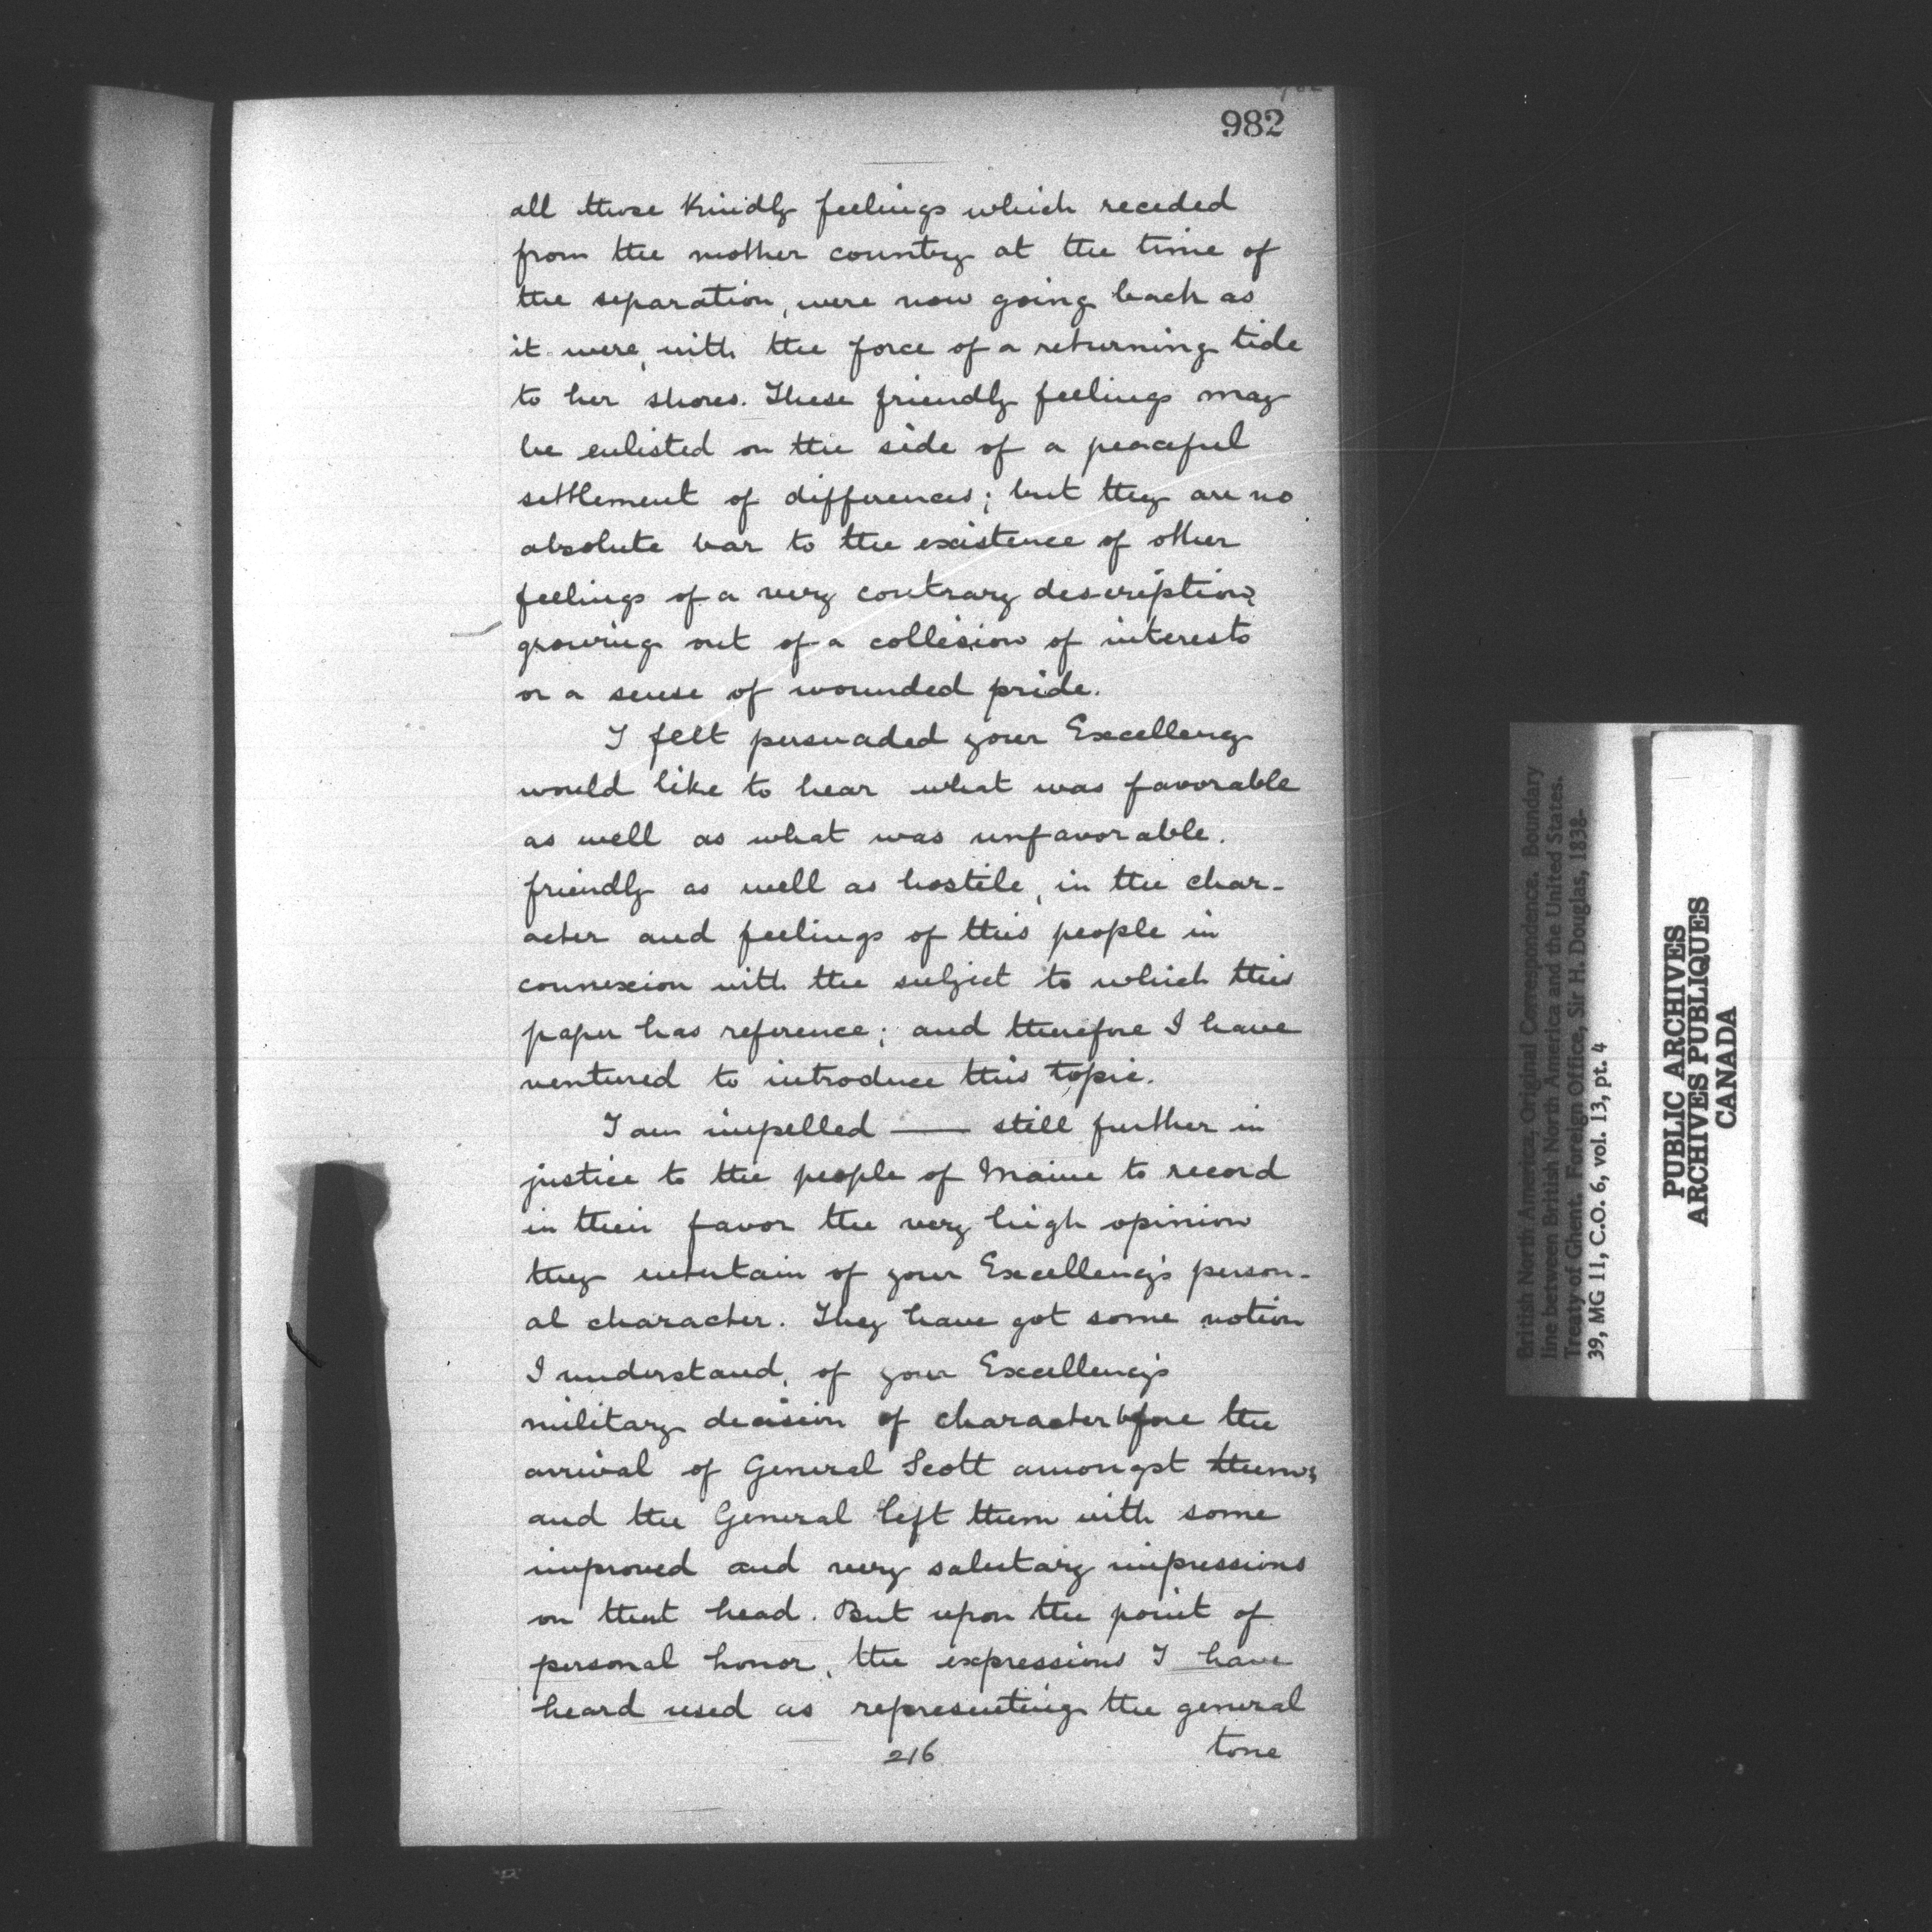 982
all those Kindly feelings which receded
from the mother country at the time of
the separation, were now going back as
it were, with the force of a returning tide
to her shores. These friendly feelings may
be enlisted on the side of a peaceful
settlement of differences; but they are no
absolute bar to the existence of other
feelings of a very contrary description,
growing out of a collision of interests
or a sense of wounded pride.
I felt persuaded your Excellency
would like to hear what was favorable
as well as what was unfavorable.
friendly as well as hostile, in the char-
acter and feelings of this people in
connexion with the subject to which this
paper has reference; and therefore I have
ventured to introduce this topic.
I am impelled —— still further in
justice to the people of Maine to record
in their favor the very high opinion
they entertain of your Excellency's person-
al character. They have got some notion
I understand, of your Excellency's
military decision of character before the
arrival of General Scott amongst them;
and the General left them with some
improved and very salutary impressions
on that head. But upon the point of
personal honor, the expressions I have
heard used as representing the general
216
tone
British North America, Original Correspondence. Boundary
line between British North America and the United States.
Treaty of Ghent. Foreign Office, Sir H. Douglas, 1838-
39, MG 11, C.O. 6, vol. 13, pt. 4
PUBLIC ARCHIVES
ARCHIVES PUBLIQUES
CANADA